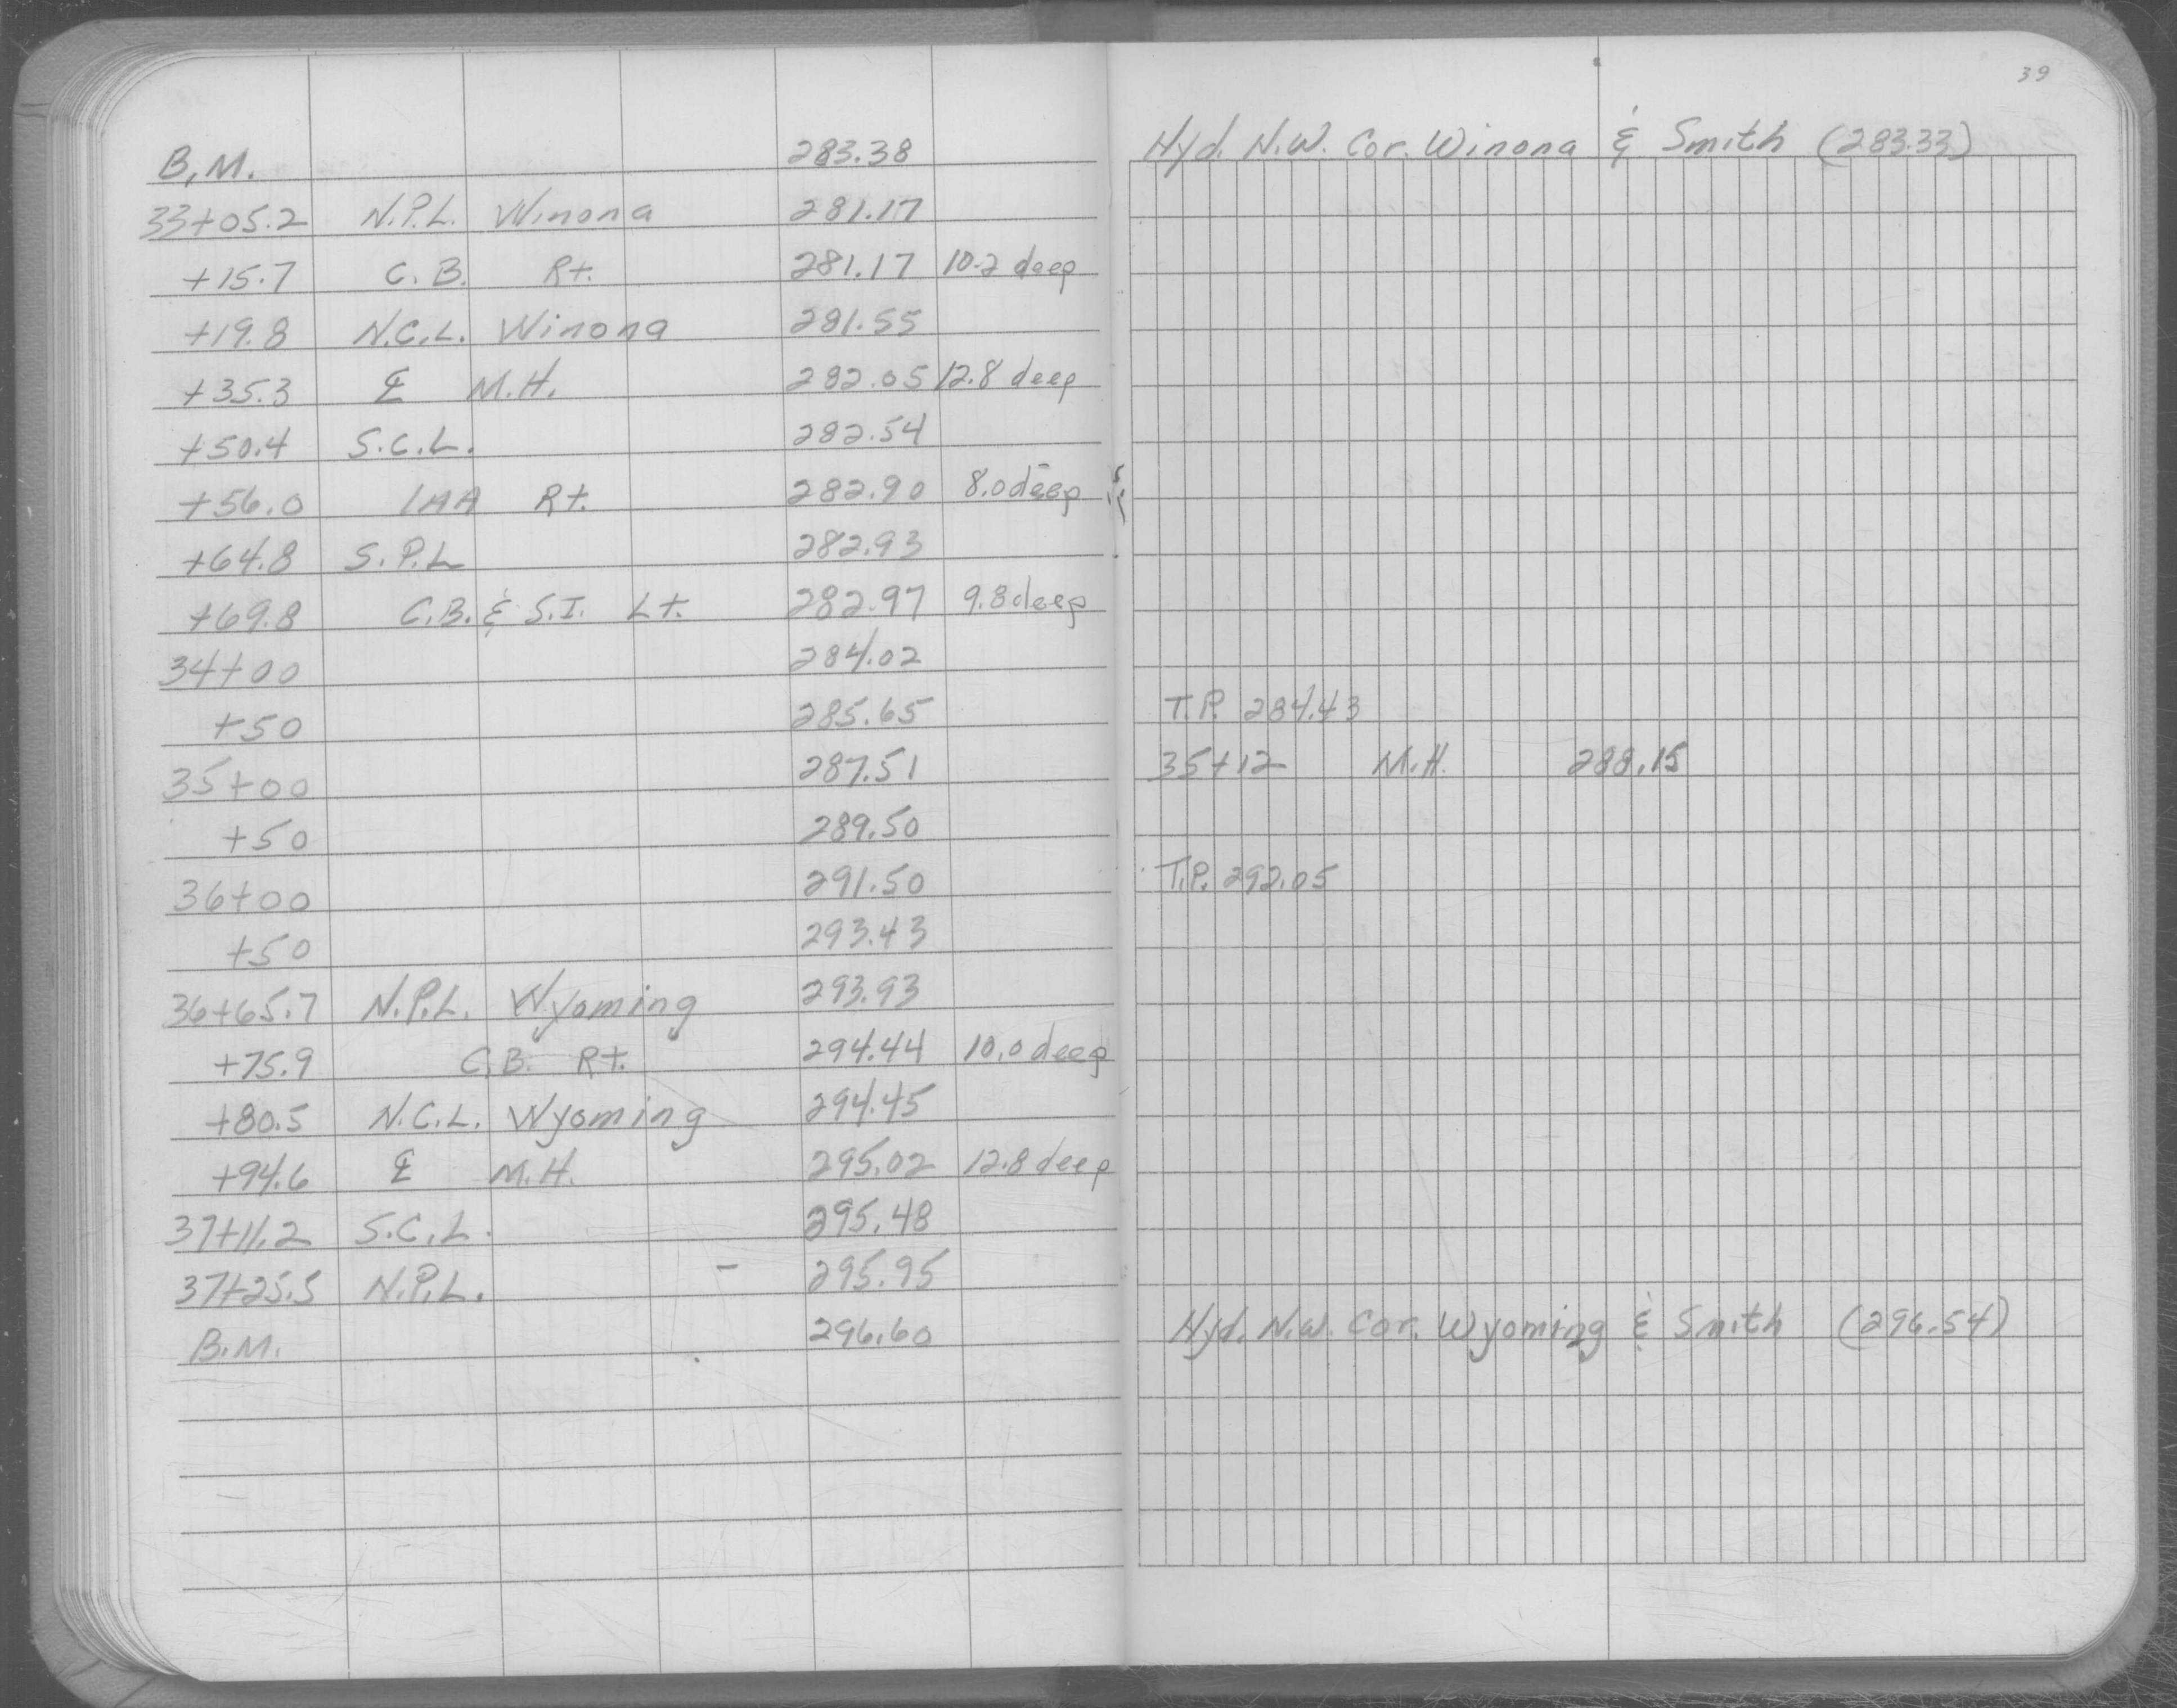 B.M. 283.38
33+05.2 N.P.L. Winona 281.17
+15.7 C.B. Rt. 281.17 10.2 deep
+19.8 N.C.L. Winona 281.55
+35.3 ℄ M.H. 282.05 12.8 deep
+50.4 S.C.L. 282.54
+56.0 1AA Rt. 282.90 8.0 deep
+64.8 S.P.L 282.93
+69.8 C.B. & S.I. Lt. 282.97 9.8 deep
34+00 284.02
+50 285.65
35+00 287.51
+50 289.50
36+00 291.50
+50 293.43
36+65.7 N.P.L. Wyoming 293.93
+75.9 C.B. Rt. 294.44 10.0 deep
+80.5 N.C.L. Wyoming 294.45
+94.6 ℄ M.H. 295.02 12.8 deep
37+11.2 S.C.L. 295.48
37+25.5 N.P.L. - 295.95
B.M. 296.60
39
Hyd. N.W. Cor. Winona & Smith (283.33)
T.P. 284.43
35+12 M.H. 288.15
T.P. 292.05
Hyd. N.W. Cor. Wyoming & Smith (296.54)